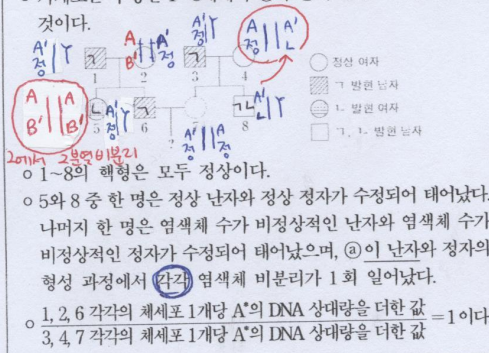 것이다.
A' 정 || Y
A B' || A' 정
A' 정 || Y
A 정 || A' ㄴ
ㄱ
ㄱ
1 2 3 4
○ 정상 여자
ㄱ 발현 남자
ㄴ 발현 여자
ㄱ, ㄴ 발현 남자
A B' || A B'
ㄴ
A' 정 || Y
ㄱ
ㄱㄴ
A' ㄴ || Y
5 6 7 8
A' 정 || A 정
2에서 2분열비분리
○ 1~8의 핵형은 모두 정상이다.
○ 5와 8 중 한 명은 정상 난자와 정상 정자가 수정되어 태어났다.
나머지 한 명은 염색체 수가 비정상적인 난자와 염색체 수가
비정상적인 정자가 수정되어 태어났으며, ⓐ이 난자와 정자의
형성 과정에서 각각 염색체 비분리가 1회 일어났다.
○ 1, 2, 6 각각의 체세포 1개당 A*의 DNA 상대량을 더한 값
3, 4, 7 각각의 체세포 1개당 A*의 DNA 상대량을 더한 값
=1 이다